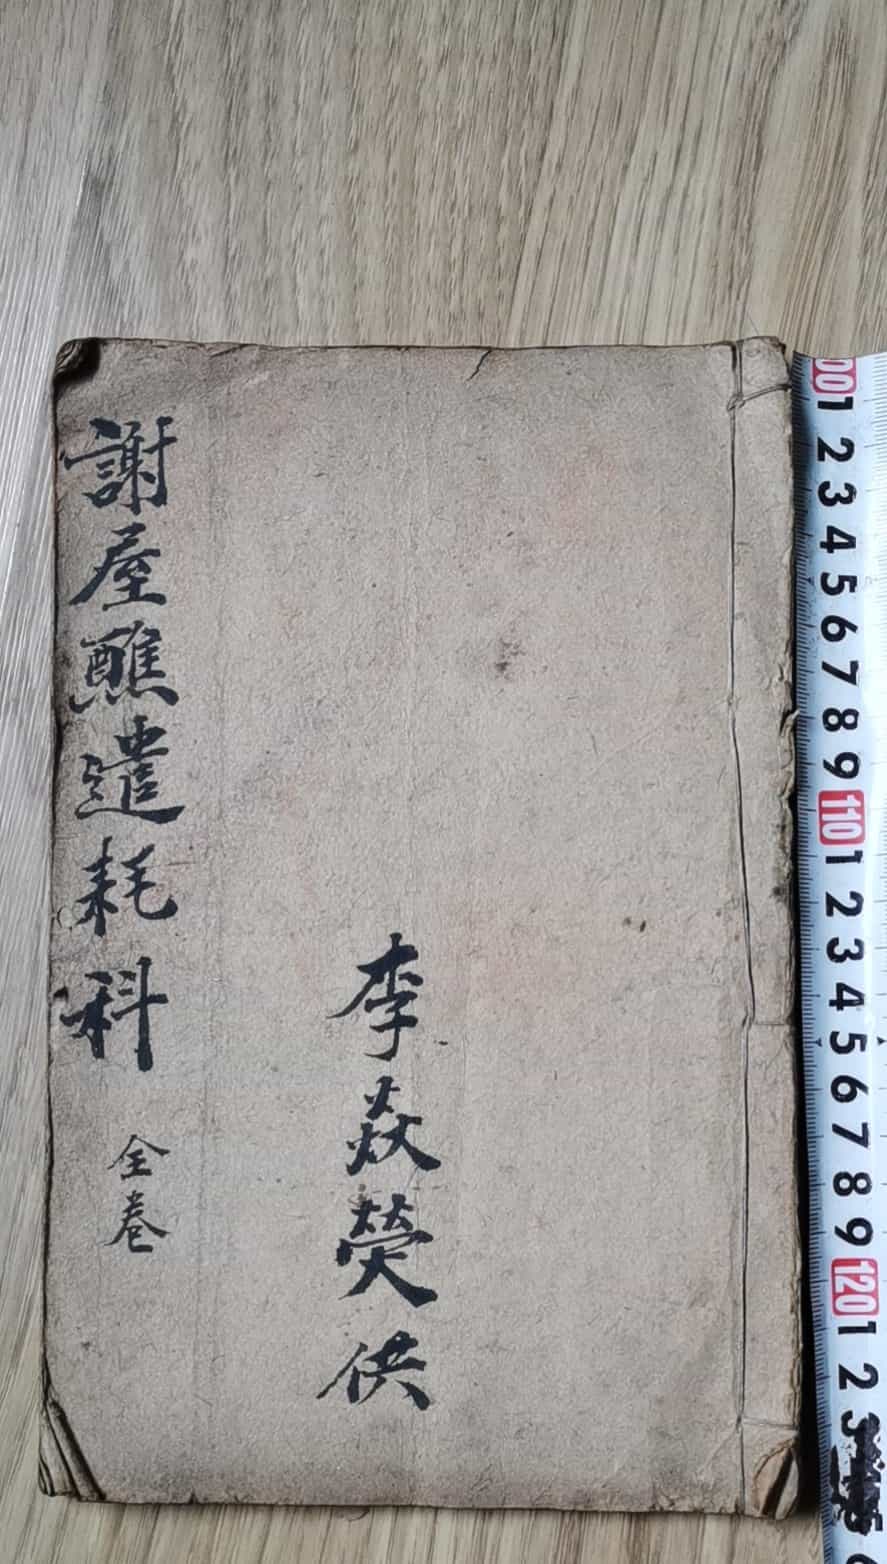 李焱熒供
謝屋醮遣耗科 全卷
00 1 2 3 4 5 6 7 8 9 110 1 2 3 4 5 6 7 8 9 120 1 2 3